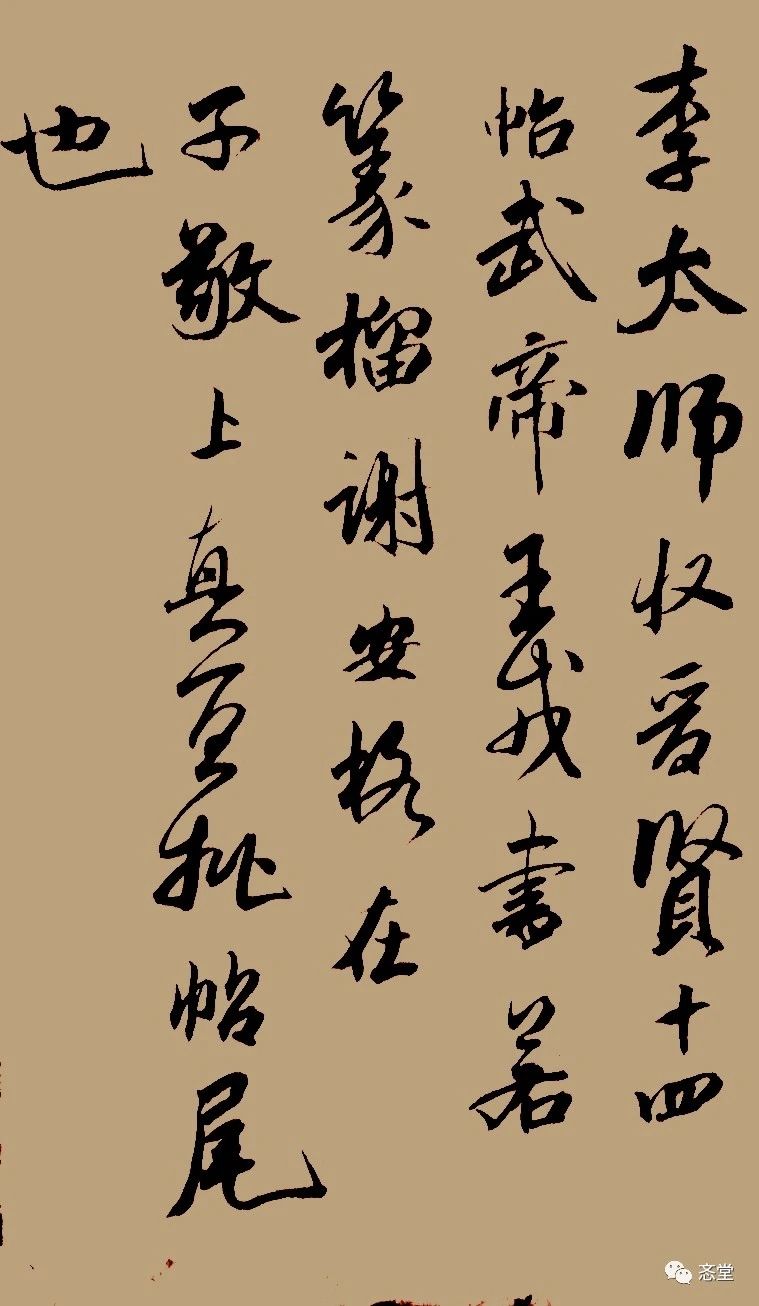 李太師收晉賢十四
帖武帝王戎書若
篆籀謝安格在
子敬上真宜批帖尾
也
忞堂